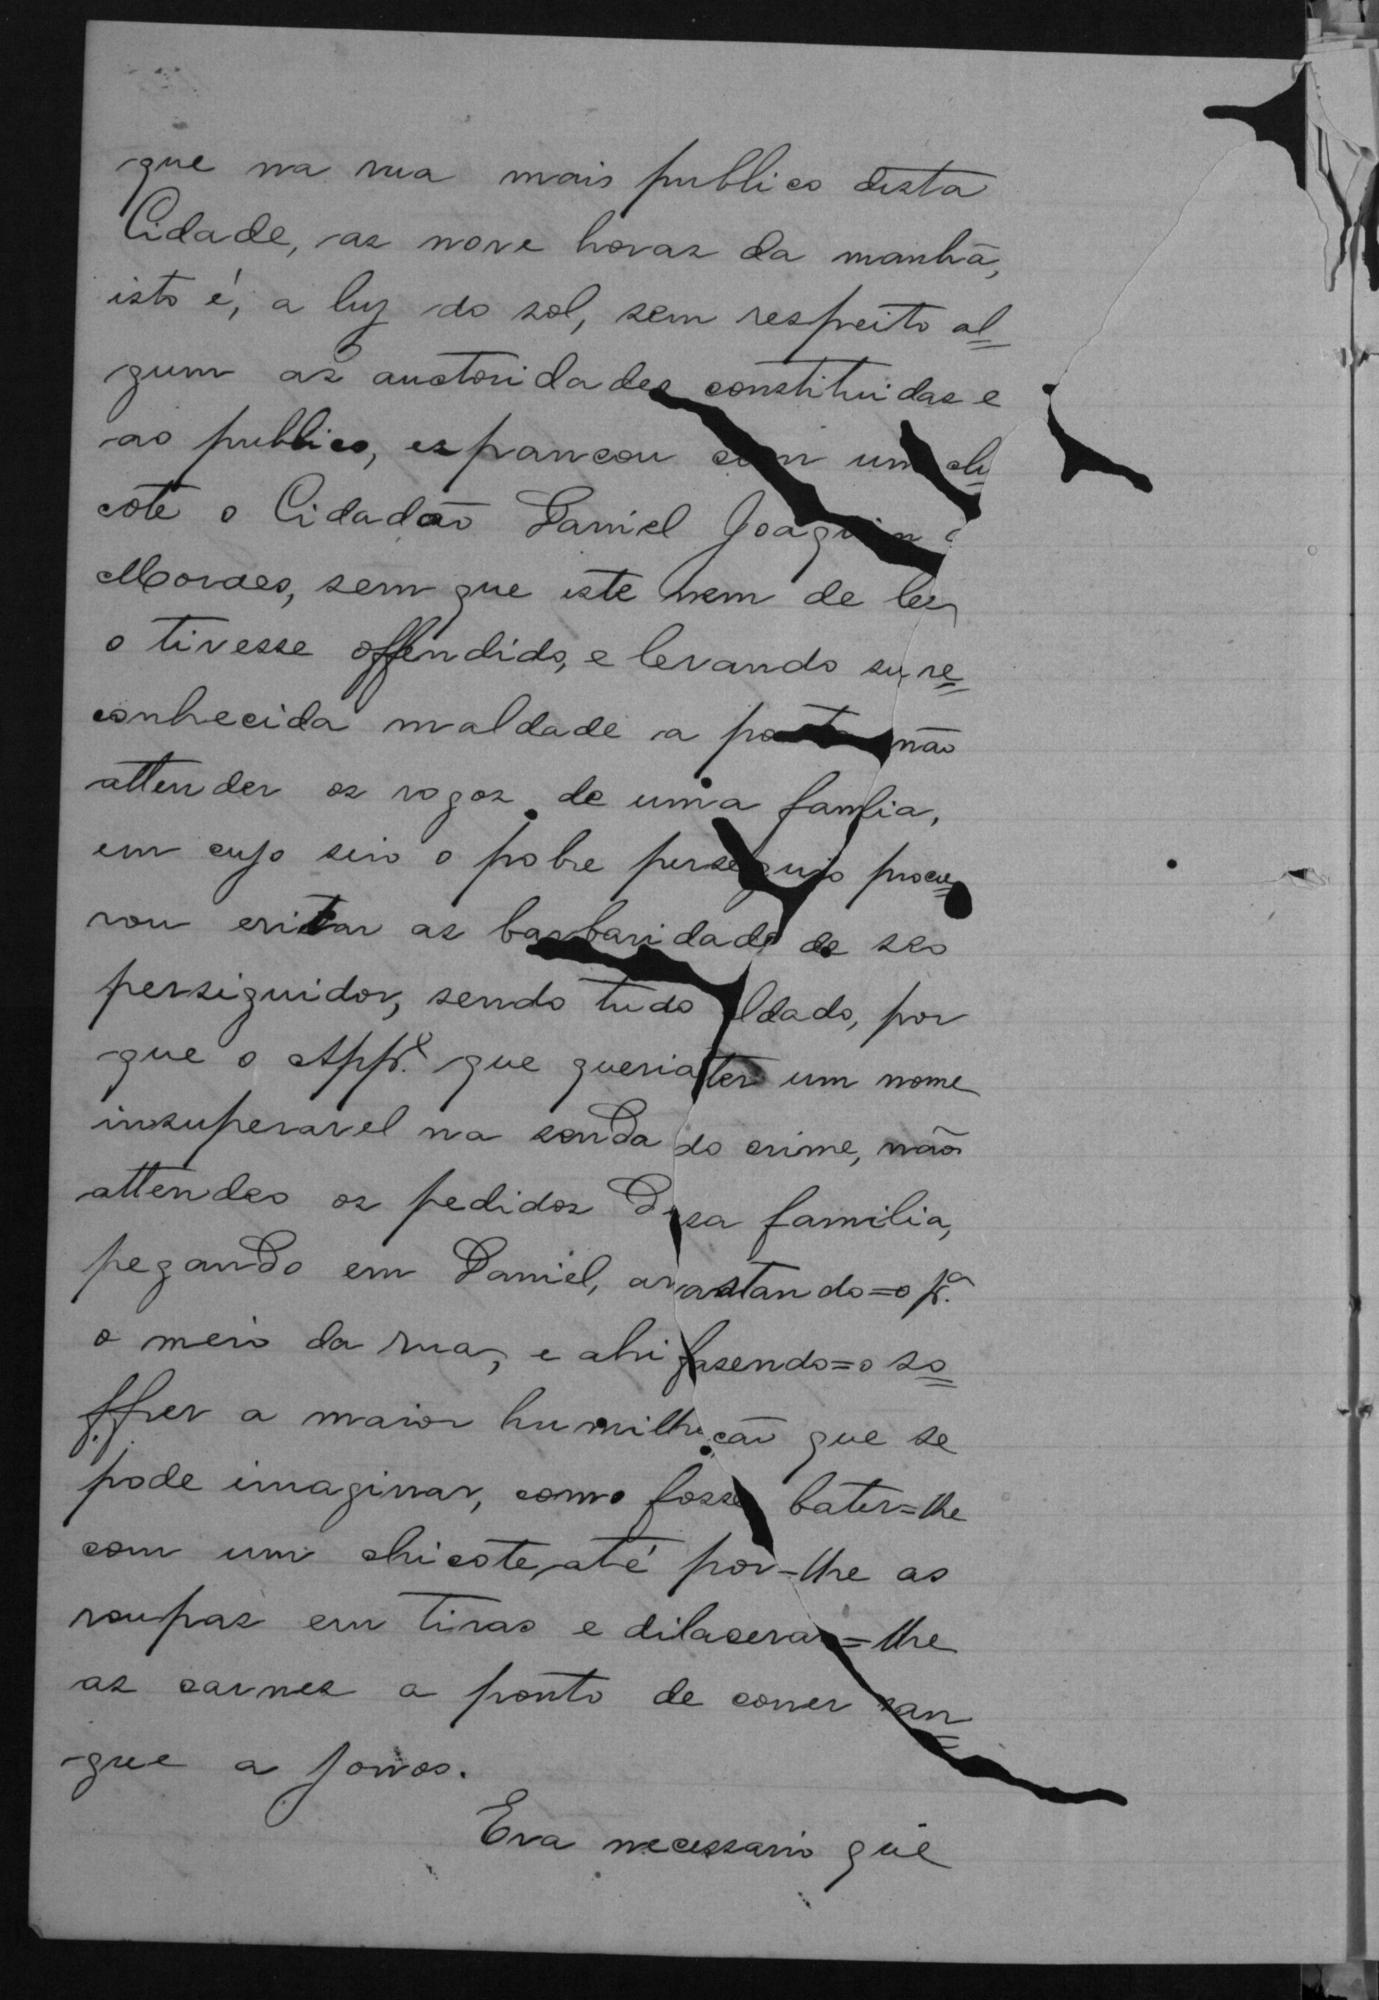 que na rua mais publico desta
Cidade, as nove horas da manhã,
isto é, a luz do sol, sem respeito al=
gum as auctoridades constituidas e
ao publico, espancou com um chi
cote o Cidadão Daniel Joaquim
Moraes, sem que este nem de leve
o tivesse offendido, e levando sua re=
conhecida maldade a ponto não
attender os rogos de uma familia,
em cujo seio o pobre perseguido procu=
rou evitar as barbaridade de seo
perseguidor, sendo tudo baldado, por
que o App.e que queria ter um nome
insuperavel na senda do crime, não
attendeo os pedidos dessa familia,
pegando em Daniel, arrastando=o p.a
o meio da rua, e ahi fasendo=o so=
ffrer a maior humilhação que se
pode imaginar, como fosse bater=lhe
com um chicote até por-lhe as
roupas em tiras e dilacerar=lhe
as carnes a ponto de correr san=
gue a jorros.
Era necessario que